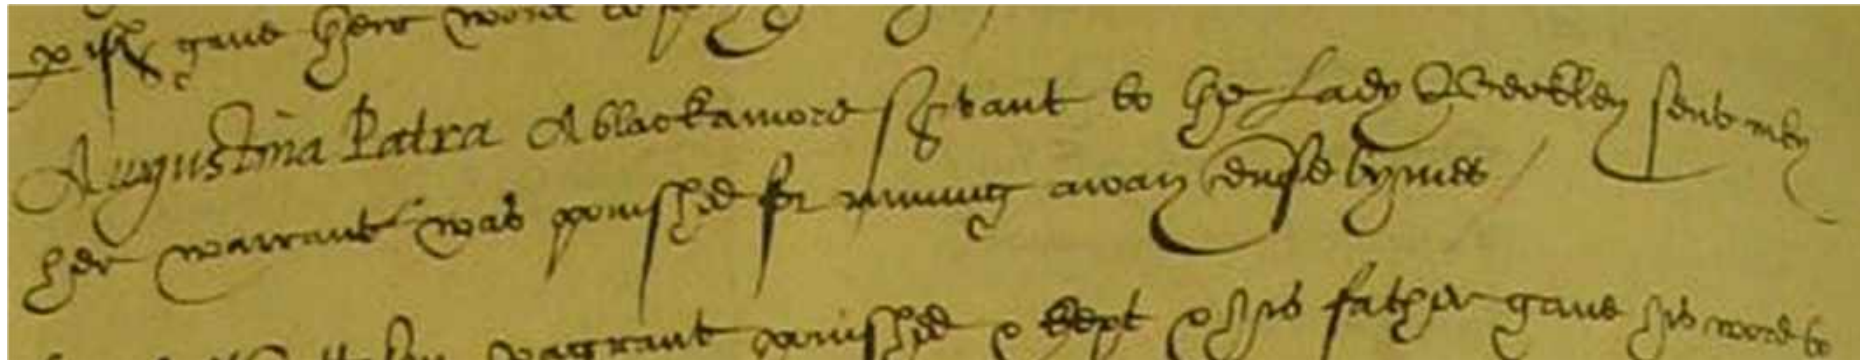 gave
Augustina Patra A blackamore servant to the Lady Berkley sent in by
her warrant was ponished for running away divse tymes
vagrant punished & kept & his father gave his word to